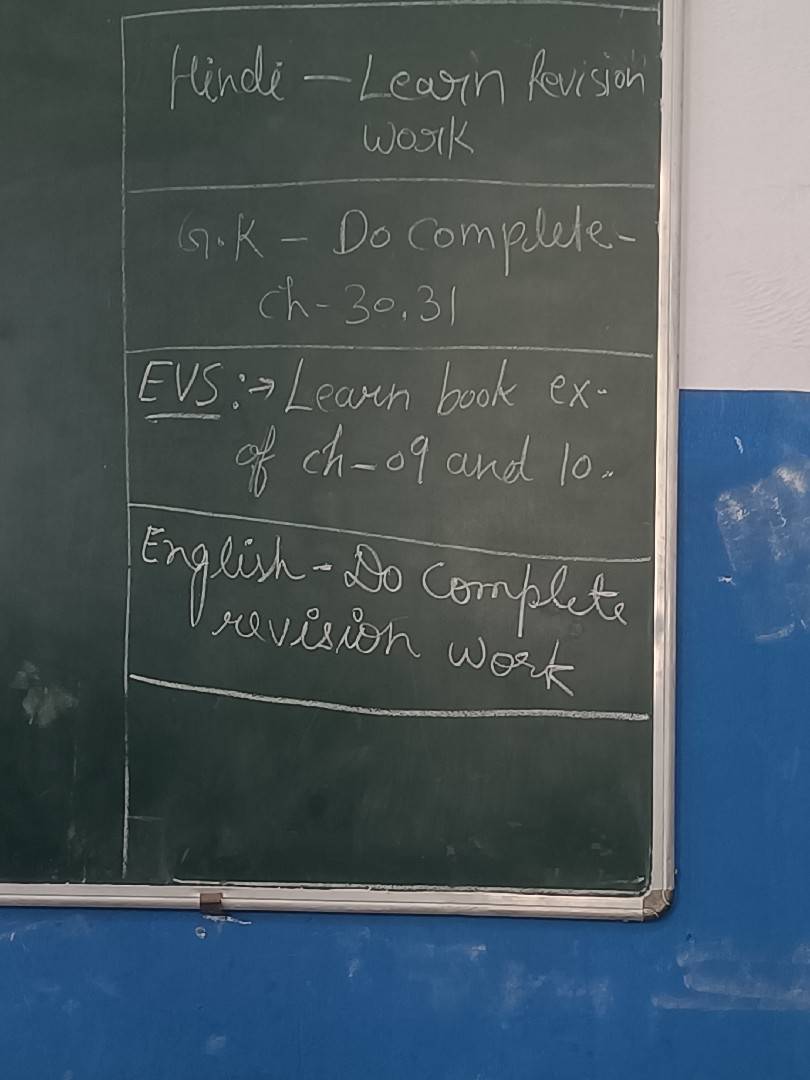 Hindi — Learn Revision
work
G.K - Do complete-
ch-30.31
EVS:→ Learn book ex.
of ch-09 and 10..
English - Do complete
revision work